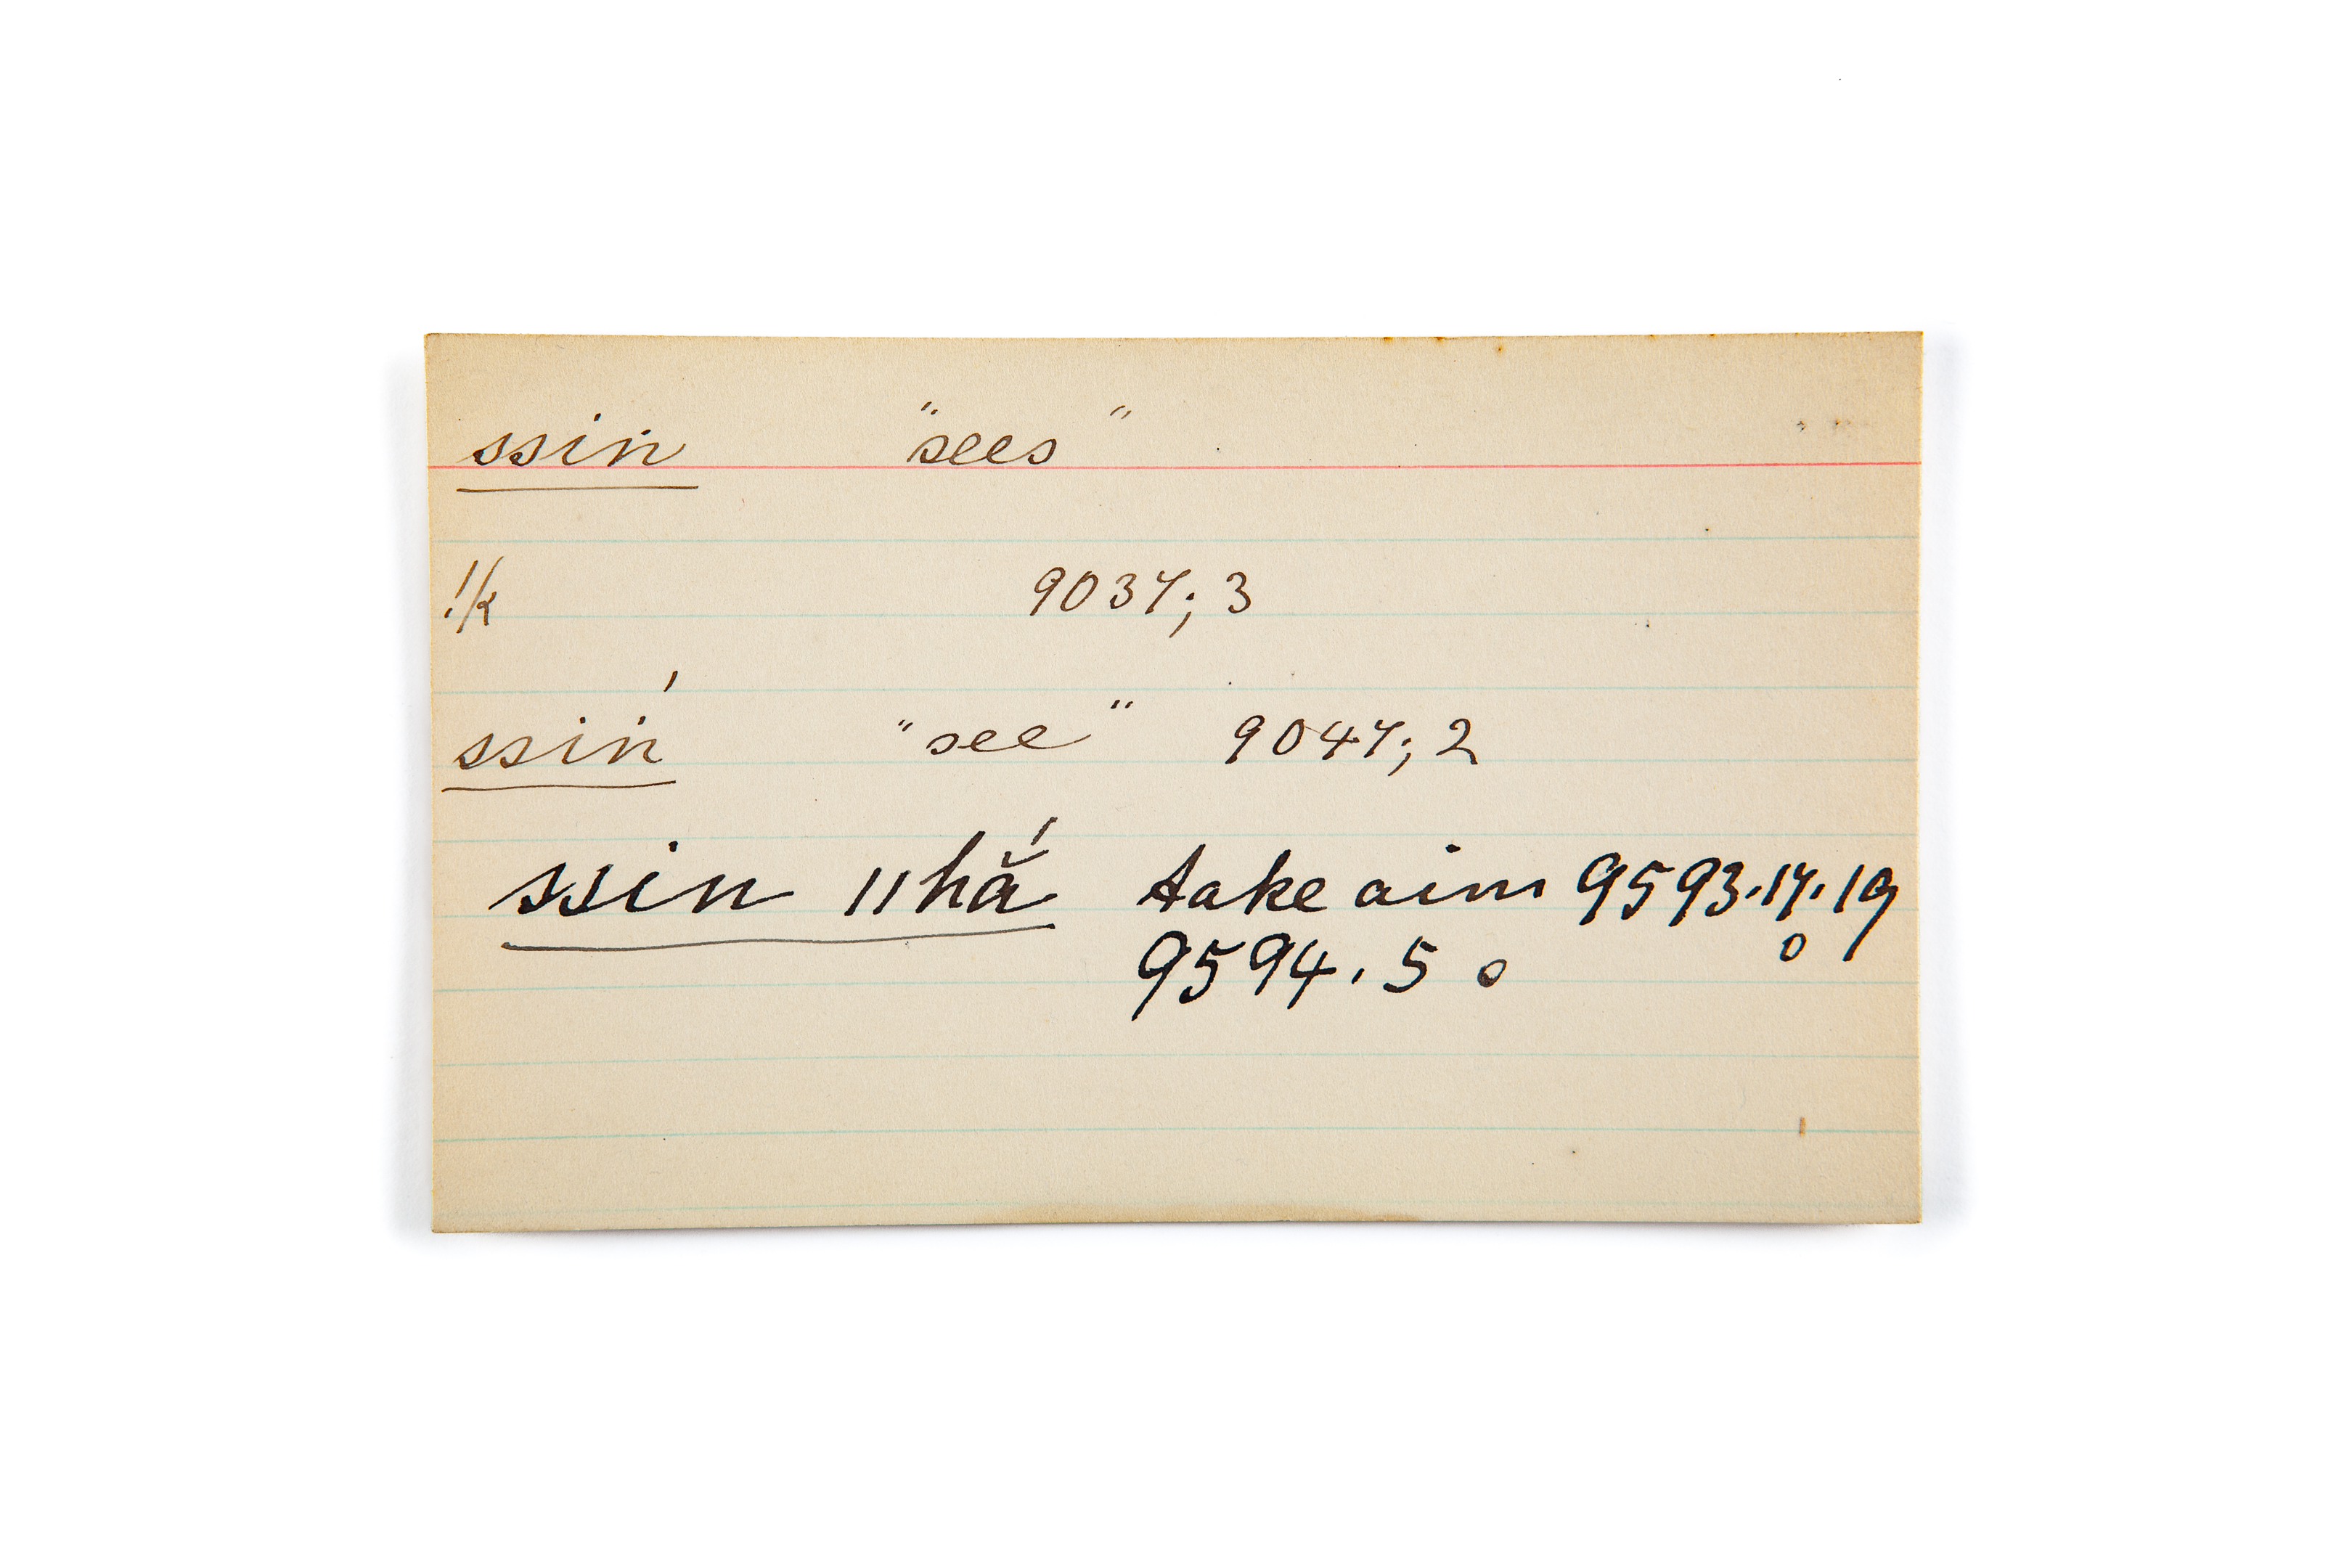 ssin "sees"
!/k 9037; 3
ssiń "see" 9047; 2
ssin ǁhắ take aim 9593.17.19
o
9594.5 o